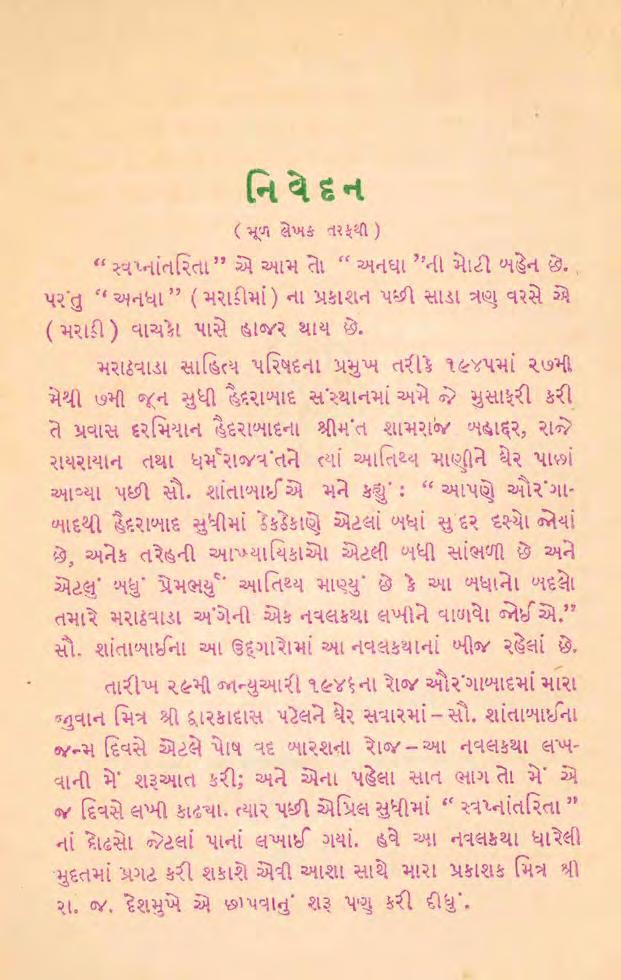 નિવેદન
( મૂળ લેખક તરફથી )
“ સ્વપ્નાંતરિતા ” એ આમ તો “ અનઘા ”ની મોટી બહેન છે.
પરંતુ “ અનઘા ” ( મરાઠીમાં ) ના પ્રકાશન પછી સાડા ત્રણ વરસે એ
( મરાઠી ) વાચકો પાસે હાજર થાય છે.
મરાઠવાડા સાહિત્ય પરિષદના પ્રમુખ તરીકે ૧૯૪૫માં ૨૭મી
મેથી ૭મી જૂન સુધી હૈદરાબાદ સંસ્થાનમાં અમે જે મુસાફરી કરી
તે પ્રવાસ દરમિયાન હૈદરાબાદના શ્રીમંત શામરાજ બહાદૂર, રાજે
રાયરાયાન તથા ધર્મરાજવંતને ત્યાં આતિથ્ય માણીને ઘેર પાછાં
આવ્યા પછી સૌ. શાંતાબાઈએ મને કહ્યું : “ આપણે ઔરંગા-
બાદથી હૈદરાબાદ સુધીમાં ઠેકઠેકાણે એટલાં બધાં સુંદર દૃશ્યો જોયાં
છે, અનેક તરેહની આખ્યાયિકાઓ એટલી બધી સાંભળી છે અને
એટલું બધું પ્રેમભર્યું આતિથ્ય માણ્યું છે કે આ બધાનો બદલો
તમારે મરાઠવાડા અંગેની એક નવલકથા લખીને વાળવો જોઈએ.”
સૌ. શાંતાબાઈના આ ઉદ્ગારોમાં આ નવલકથાનાં બીજ રહેલાં છે.
તારીખ ૨૯મી જાન્યુઆરી ૧૯૪૬ના રોજ ઔરંગાબાદમાં મારા
જુવાન મિત્ર શ્રી દ્વારકાદાસ પટેલને ઘેર સવારમાં – સૌ. શાંતાબાઈના
જન્મ દિવસે એટલે પોષ વદ બારશના રોજ – આ નવલકથા લખ-
વાની મેં શરૂઆત કરી; અને એના પહેલા સાત ભાગ તો મેં એ
જ દિવસે લખી કાઢ્યા. ત્યાર પછી એપ્રિલ સુધીમાં “ સ્વપ્નાંતરિતા ”
નાં દોઢસો જેટલાં પાનાં લખાઈ ગયાં. હવે આ નવલકથા ધારેલી
મુદતમાં પ્રગટ કરી શકાશે એવી આશા સાથે મારા પ્રકાશક મિત્ર શ્રી
રા. જ. દેશમુખે એ છાપવાનું શરૂ પણ કરી દીધું.